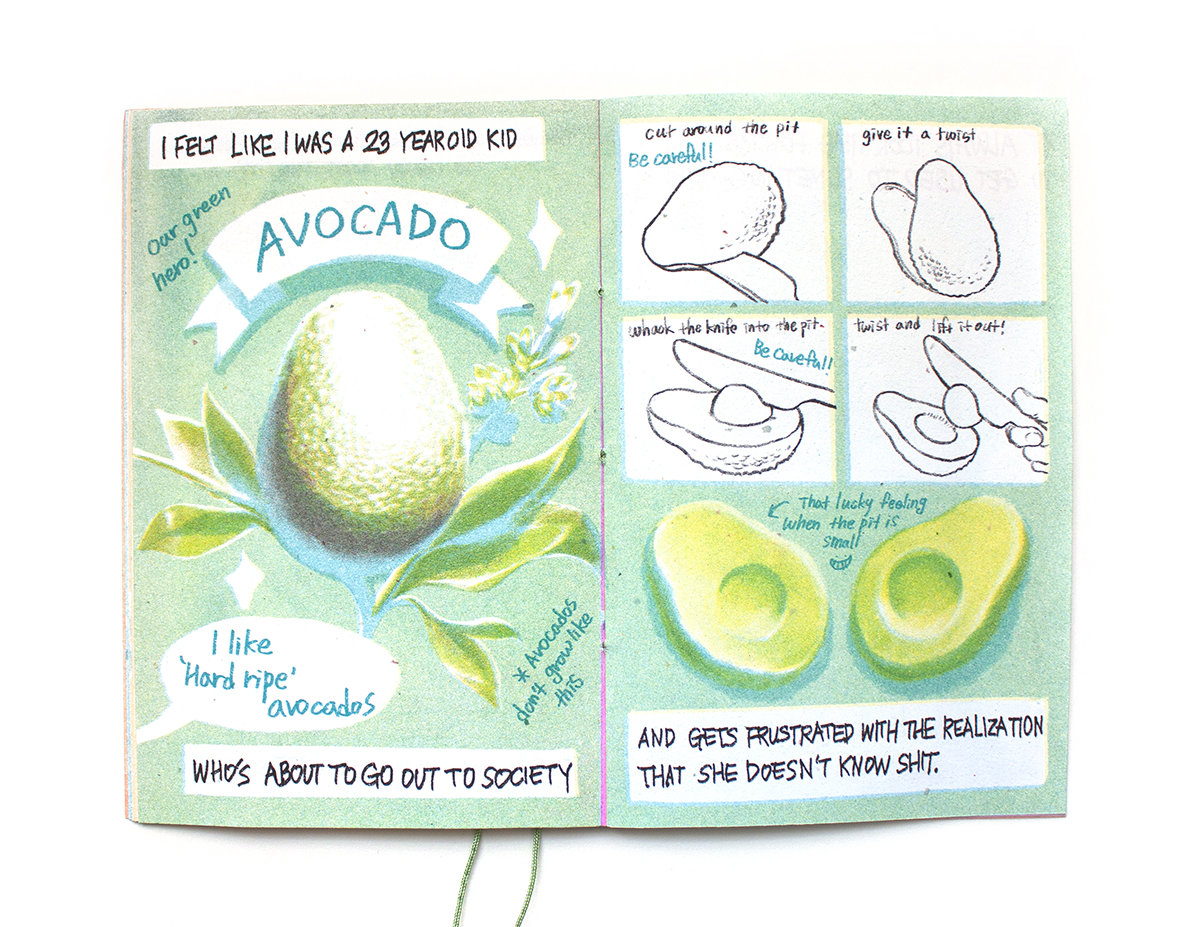 I FELT LIKE I WAS A 23 YEAROID KID
our green
hero!
AVOCADO
I like
'Hard ripe'
avocados
* Avocados
don't grow like
this
WHO'S ABOUT TO GO OUT TO SOCIETY
cut around the pit
Be careful!
give it a twist
whack the knife into the pit.
Be Careful!
twist and lift it out!
That lucky feeling
when the pit is
small
AND GETS FRUSTRATED WITH THE REALIZATION
THAT SHE DOESN'T KNOW SHIT.